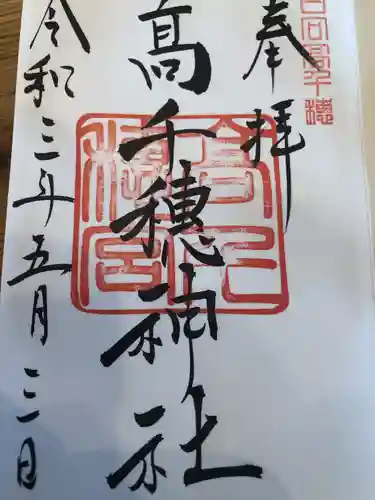 日向高千穂
奉拝
髙千穂神社
令和三年五月三日